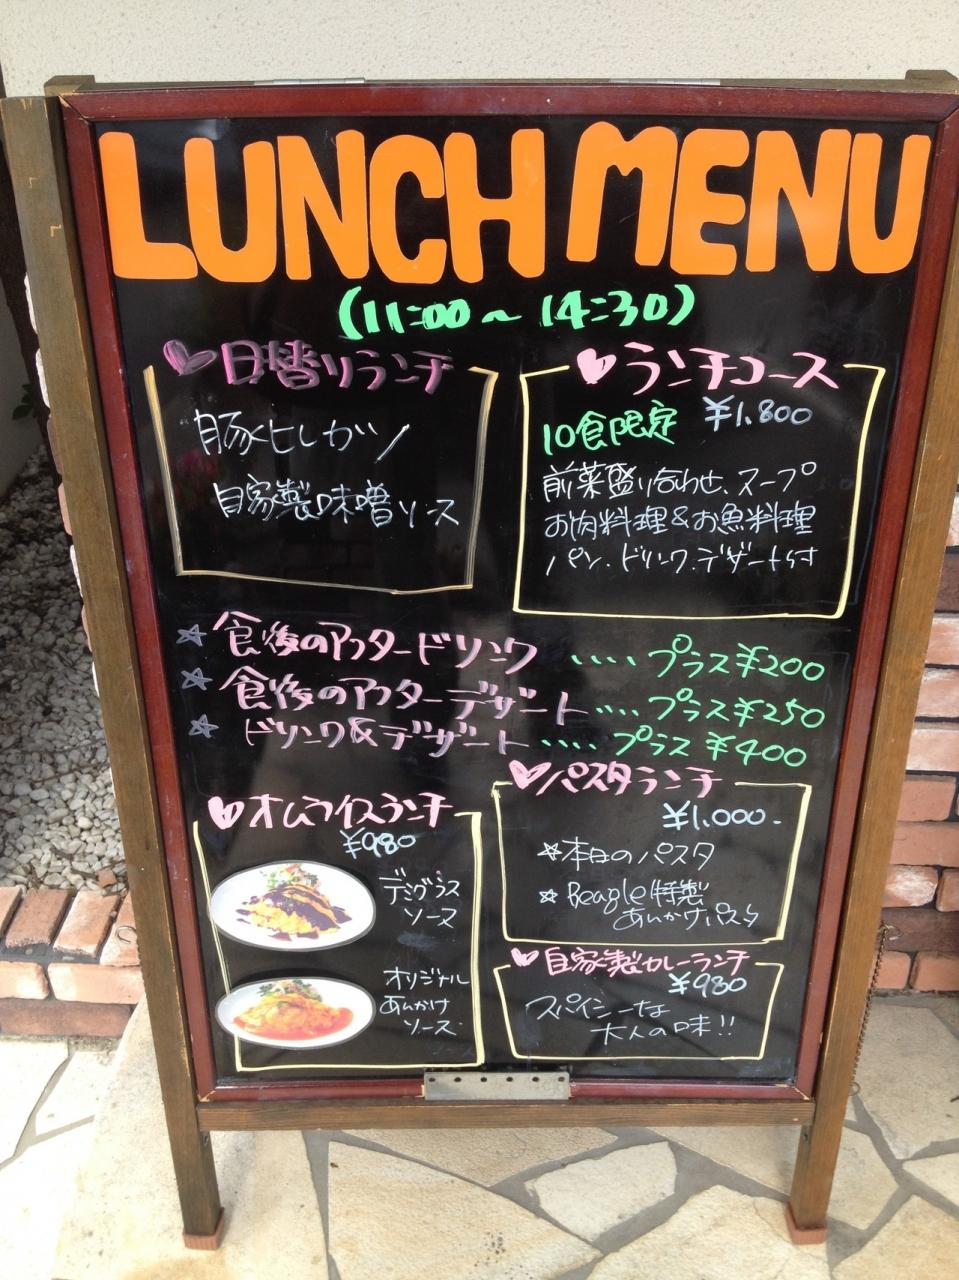 LUNCH MENU
(11:00〜14:30)
日替りランチ
豚ヒレカツ
自家製味噌ソース
ランチコース
10食限定 ¥1.800
前菜盛り合わせ、スープ
お肉料理&お魚料理
パン、ドリンク、デザート付
☆食後のアフタードリンク ････ プラス¥200
☆食後のアフターデザート ････ プラス¥250
☆ドリンク&デザート ･････ プラス¥400
オムライスランチ
¥980
デミグラス
ソース
オリジナル
あんかけ
ソース
パスタランチ
¥1.000.
☆本日のパスタ
☆Beagle特製
あんかけパスタ
自家製カレーランチ
¥980
スパイシーな
大人の味!!